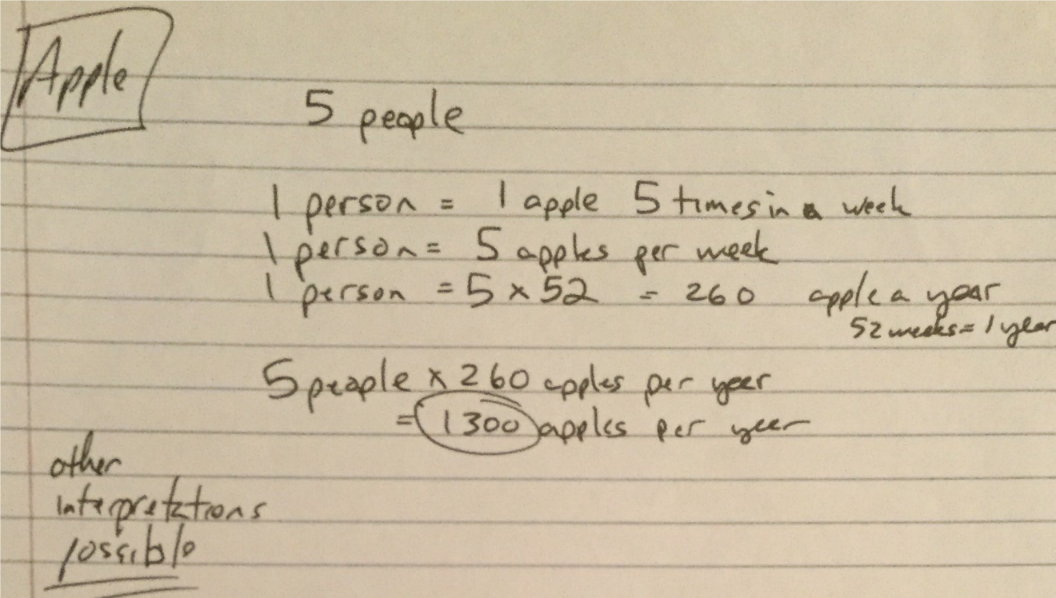 Apple
5 people
1 person = 1 apple 5 times in a week
1 person = 5 apples per week
1 person = 5 x 52 = 260 apple a year
52 weeks = 1 year
5 people x 260 apples per year
= 1300 apples per year
other
interpretations
possible